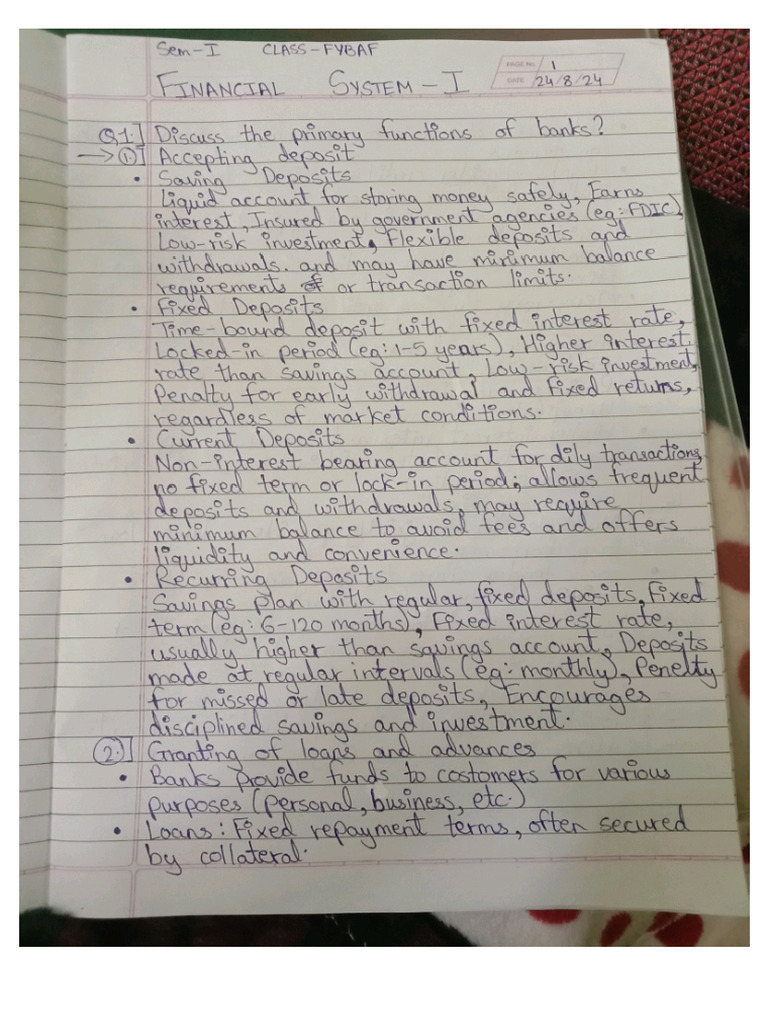 Sem-I CLASS-FYBAF
PAGE NO. 1
FINANCIAL SYSTEM-I
DATE 24/8/24
Q1.] Discuss the primary functions of banks?
→ 1.] Accepting deposit
• Saving Deposits
Liquid account for storing money safely, Earns
interest, Insured by government agencies (eg: FDIC),
Low-risk investment, Flexible deposits and
withdrawals. and may have minimum balance
requirements or transaction limits.
• Fixed Deposits
Time-bound deposit with fixed interest rate,
Locked-in period (eg: 1-5 years), Higher interest
rate than savings account, Low-risk investment,
Penalty for early withdrawal and fixed returns,
regardless of market conditions.
• Current Deposits
Non-interest bearing account for dily transactions,
no fixed term or lock-in period; allows frequent
deposits and withdrawals, may require
minimum balance to avoid fees and offers
liquidity and convenience.
• Recurring Deposits
Savings plan with regular, fixed deposits, Fixed
term (eg: 6-120 months), Fixed interest rate,
usually higher than savings account, Deposits
made at regular intervals (eg: monthly), Penelty
for missed or late deposits, Encourages
disciplined savings and investment.
2.] Granting of loans and advances
• Banks provide funds to costomers for various
purposes (personal, business, etc.)
• Loans: Fixed repayment terms, often secured
by collateral.